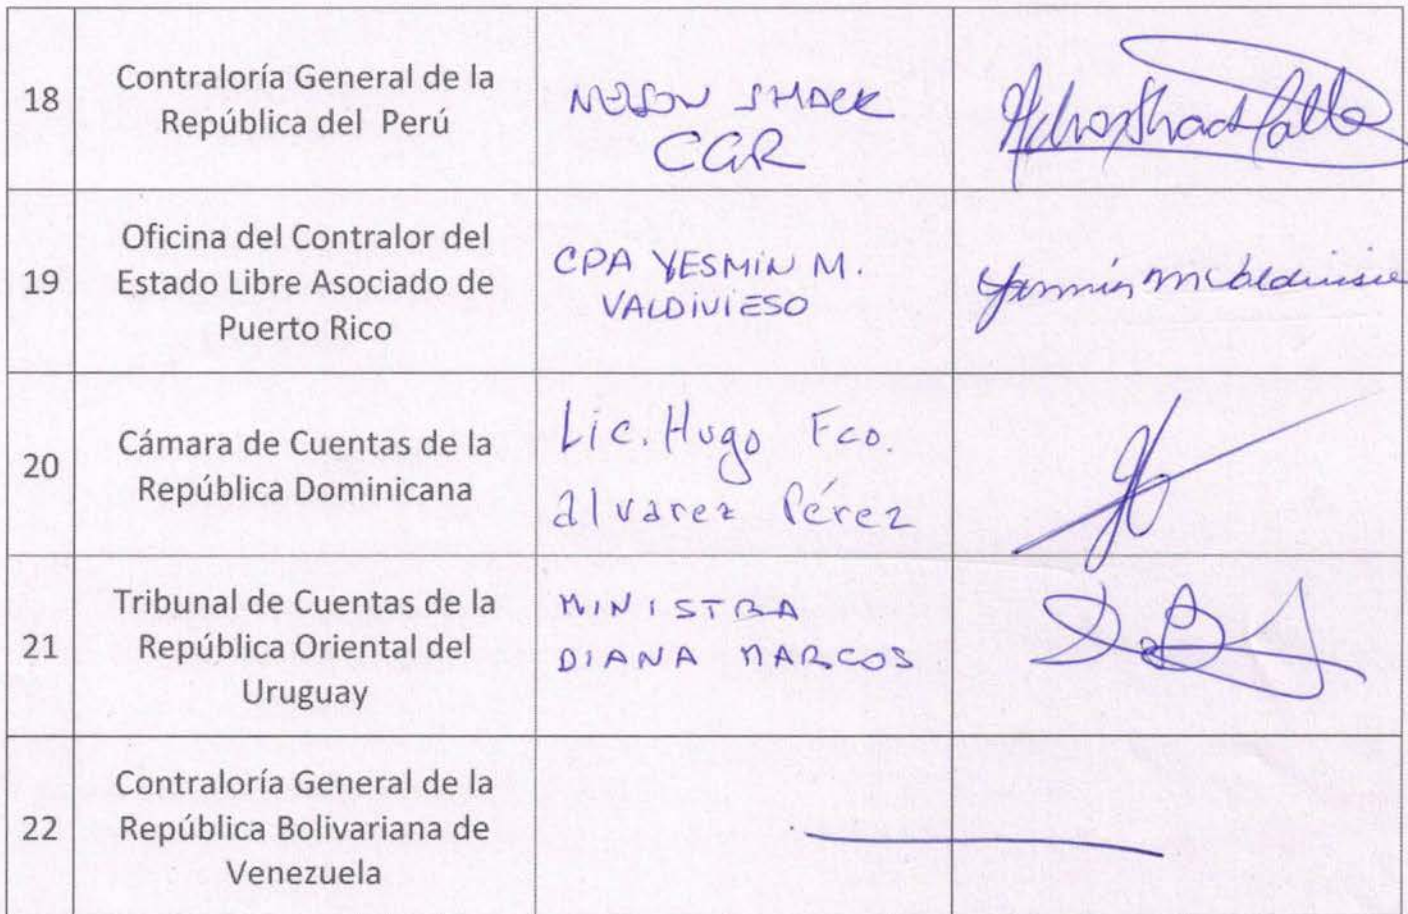 18
Contraloría General de la
República del Perú
NELSON SHACK
CGR
19
Oficina del Contralor del
Estado Libre Asociado de
Puerto Rico
CPA YESMIN M.
VALDIVIESO
Yesmín M Valdivieso
20
Cámara de Cuentas de la
República Dominicana
Lic. Hugo Fco.
alvarez Pérez
21
Tribunal de Cuentas de la
República Oriental del
Uruguay
MINISTRA
DIANA MARCOS
22
Contraloría General de la
República Bolivariana de
Venezuela